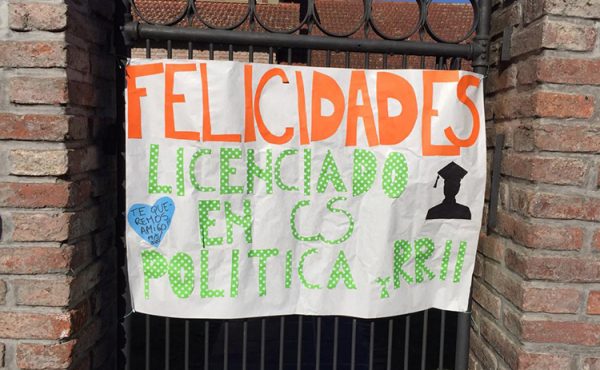 FELICIDADES
LICENCIADO
EN CS
POLITICA Y RRII
TE QUE-
REMOS
AMIGO